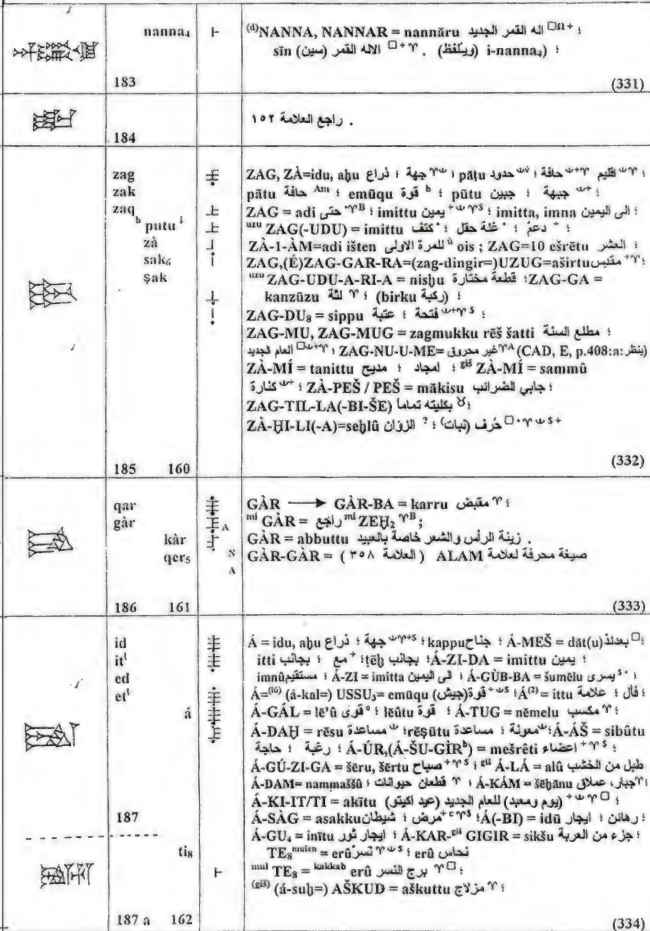 nanna₄ ⊢ ⁽ᵈ⁾NANNA, NANNAR = nannāru اله القمر الجديد ؛
sīn الاله القمر (سين) . (ويُلفظ) i-nanna₄) ؛
183 (331)
. راجع العلامة ١٥٢
184
zag ZAG, ZÀ=idu, aḫu ذراع ؛ جهة ؛ pāṭu حدود ؛ حافة ؛ اقليم ؛
zak pātu حافة ؛ emūqu قوة ؛ pūtu جبين ؛ جبهة ؛
zaq ZAG = adi حتى ؛ imittu يمين ؛ imitta, imna الى اليمين ؛
putu ᵘᶻᵘ ZAG(-UDU) = imittu كتف ؛ غلة حقل ؛ دعم ؛
zà ZÀ-1-ÀM=adi išten للمرة الاولى ois ; ZAG=10 ešrētu العشر ؛
sak₆ ZAG,(É)ZAG-GAR-RA=(zag-dingir=)UZUG=aširtu مقدس ؛
ṣak ᵘᶻᵘ ZAG-UDU-A-RI-A = nisḫu قطعة مختارة ؛ ZAG-GA =
kanzūzu لثة ؛ (birku ركبة) ؛
ZAG-DU₈ = sippu عتبة ؛ فتحة ؛
ZAG-MU, ZAG-MUG = zagmukku rēš šatti مطلع السنة ؛
العام الجديد ؛ ZAG-NU-U-ME= غير محروق (CAD, E, p.408:a: ينظر)
ZÀ-MÍ = tanittu مديح ؛ امجاد ؛ ᵍⁱˢ ZÀ-MÍ = sammû
كنارة ؛ ZÀ-PEŠ / PEŠ = mākisu جابي الضرائب ؛
ZAG-TIL-LA(-BI-ŠE) بكليته تماماً ؛
ZÀ-ḪI-LI(-A)=seḫlû الزؤان ؟ ؛ حُرف (نبات)
185 160 (332)
qar GÀR ⟶ GÀR-BA = karru مقبض ؛
gàr ᵐⁱ GÀR = راجع ᵐⁱ ZEḪ₂ ;
kàr GÀR = abbuttu زينة الرأس والشعر خاصة بالعبيد .
qer₅ GÀR-GÀR = ( العلامة ٣٥٨ ) ALAM صيغة محرفة لعلامة
186 161 (333)
id Á = idu, aḫu ذراع ؛ جهة ؛ kappu جناح ؛ Á-MEŠ = dāt(u) بعدئذ ؛
it itti بجانب ؛ مع ؛ ṭēḫ بجانب ؛ Á-ZI-DA = imittu يمين ؛
ed imnû مستقيم ؛ Á-ZI = imitta الى اليمين ؛ Á-GÙB-BA = šumēlu يسرى ؛
et Á= (á-kal=) USSU₃= emūqu قوة (جيش) ؛ Á⁽²⁾ = ittu علامة ؛ فأل ؛
á Á-GÁL = lē'û قوى ؛ lēûtu قوة ؛ Á-TUG = nēmelu مكسب ؛
Á-DAḪ = rēṣu مساعدة ؛ rēṣūtu مساعدة ؛ معونة ؛ Á-ÁŠ = sibûtu
حاجة ؛ رغبة ؛ Á-ÚR,(Á-ŠU-GÌR) = mešrêti اعضاء ؛
Á-GÚ-ZI-GA = šēru, šērtu صباح ؛ ᵍⁱˢ Á-LÁ = alû طبل من الخشب
Á-DAM= nammaššû قطعان حيوانات ؛ Á-KÁM = šēḫānu جبار، عملاق ؛
Á-KI-IT/TI = akītu (يوم ومعبد) للعام الجديد (عيد اكيتو) ؛
187 Á-SÀG = asakku شيطان ؛ مرض ؛ Á(-BI) = idū ايجار ؛ رهائن ؛
Á-GU₄ = inītu ايجار ثور ؛ Á-KAR-ᵍⁱˢ GIGIR = sikšu جزء من العربة ؛
ti₈ TE₈ᵐᵘˢᵉⁿ = erû نسر ؛ erû نحاس
⊢ ᵐᵘˡ TE₈ = ᵏᵃᵏᵏᵃᵇ erû برج النسر ؛
⁽ᵍⁱˢ⁾ (á-suḫ=) AŠKUD = aškuttu مزلاج ؛
187 a 162 (334)